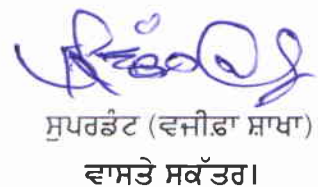 ਸੁਪਰਡੰਟ (ਵਜੀਫ਼ਾ ਸ਼ਾਖਾ)
ਵਾਸਤੇ ਸਕੱਤਰ।